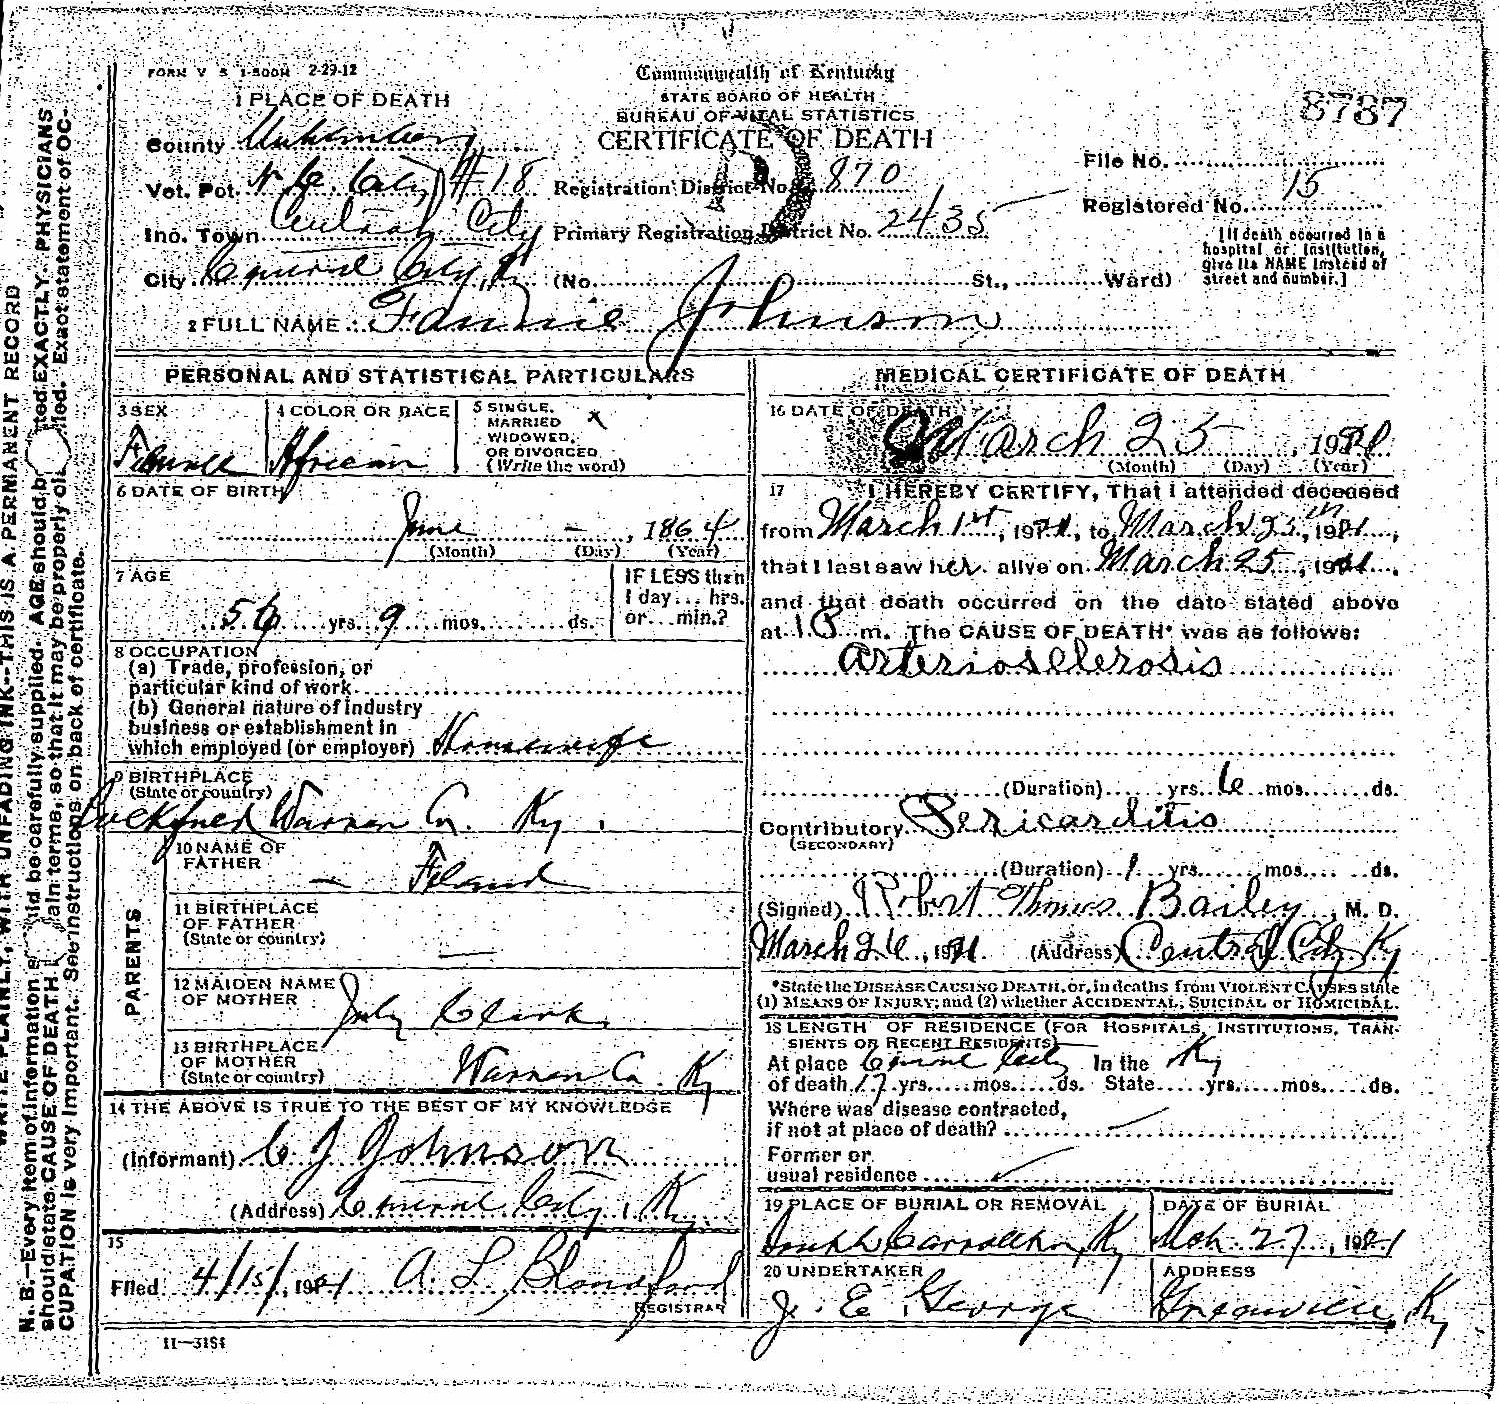 FORM V S 1-500M 2-29-12
Commonwealth of Kentucky
STATE BOARD OF HEALTH
BUREAU OF VITAL STATISTICS
CERTIFICATE OF DEATH
8787
1 PLACE OF DEATH
County Muhlenberg
Vot. Pct. N. C. City #18
Ino. Town Central City
City Central City, Ky (No. St., Ward)
Registration District No. 870
Primary Registration District No. 2435
File No.
Registered No. 15
[If death occurred in a
hospital or institution,
give its NAME instead of
street and number.]
2 FULL NAME Fannie Johnson
PERSONAL AND STATISTICAL PARTICULARS
3 SEX
Female
4 COLOR OR RACE
African
5 SINGLE,
MARRIED
WIDOWED,
OR DIVORCED
(Write the word)
x
6 DATE OF BIRTH
June – , 1864
(Month) (Day) (Year)
7 AGE
56 yrs. 9 mos. ds.
IF LESS than
1 day... hrs.
or... min.?
8 OCCUPATION
(a) Trade, profession, or
particular kind of work
(b) General nature of industry
business or establishment in
which employed (or employer) Housewife
9 BIRTHPLACE
(State or country)
Warren Co. Ky.
PARENTS
10 NAME OF
FATHER
— Feland
11 BIRTHPLACE
OF FATHER
(State or country)
—
12 MAIDEN NAME
OF MOTHER
July Clark
13 BIRTHPLACE
OF MOTHER
(State or country)
Warren Co. Ky
14 THE ABOVE IS TRUE TO THE BEST OF MY KNOWLEDGE
(Informant) C J Johnson
(Address) Central City, Ky.
15
Filed 4/15/, 1921 A. L. Blandford
REGISTRAR
11—3184
MEDICAL CERTIFICATE OF DEATH
16 DATE OF DEATH
March 25, 1921
(Month) (Day) (Year)
17 I HEREBY CERTIFY, That I attended deceased
from March 1st, 1921, to March 25th, 1921,
that I last saw her alive on March 25, 1921,
and that death occurred on the date stated above
at 10 m. The CAUSE OF DEATH* was as follows:
Arteriosclerosis
(Duration) yrs. 6 mos. ds.
Contributory Pericarditis
(SECONDARY)
(Duration) 1 yrs. mos. ds.
(Signed) Robert Thomas Bailey, M. D.
March 26, 1921 (Address) Central City Ky
*State the DISEASE CAUSING DEATH, or, in deaths from VIOLENT CAUSES state
(1) MEANS OF INJURY; and (2) whether ACCIDENTAL, SUICIDAL or HOMICIDAL.
18 LENGTH OF RESIDENCE (FOR HOSPITALS, INSTITUTIONS, TRAN-
SIENTS OR RECENT RESIDENTS)
At place Central City In the Ky
of death 17 yrs. mos. ds. State yrs. mos. ds.
Where was disease contracted,
if not at place of death?
Former or
usual residence
19 PLACE OF BURIAL OR REMOVAL
South Carrollton, Ky
DATE OF BURIAL
Mch. 27, 1921
20 UNDERTAKER
J. E. George
ADDRESS
Greenville, Ky
WRITE PLAINLY, WITH UNFADING INK--THIS IS A PERMANENT RECORD
N. B.—Every item of information should be carefully supplied. AGE should be stated EXACTLY. PHYSICIANS
should state CAUSE OF DEATH in plain terms, so that it may be properly classified. Exact statement of OC-
CUPATION is very important. See instructions on back of certificate.